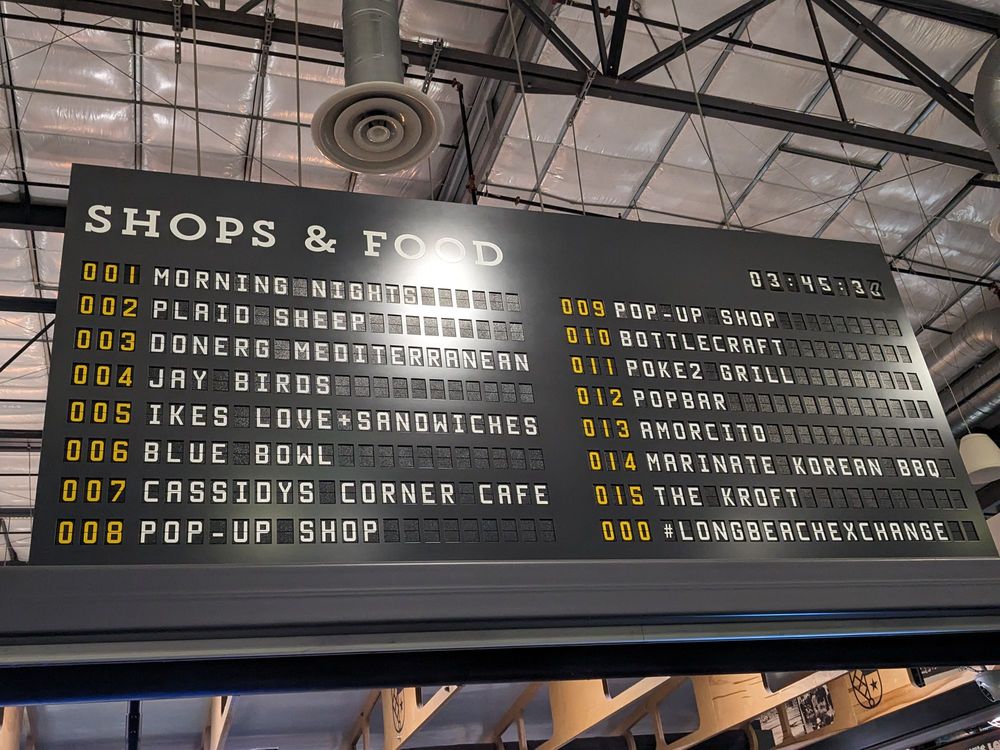 SHOPS & FOOD
001 MORNING NIGHTS
002 PLAID SHEEP
003 DONERG MEDITERRANEAN
004 JAY BIRDS
005 IKES LOVE+SANDWICHES
006 BLUE BOWL
007 CASSIDYS CORNER CAFE
008 POP-UP SHOP
03:45:3
009 POP-UP SHOP
010 BOTTLECRAFT
011 POKE2 GRILL
012 POPBAR
013 AMORCITO
014 MARINATE KOREAN BBQ
015 THE KROFT
000 #LONGBEACHEXCHANGE